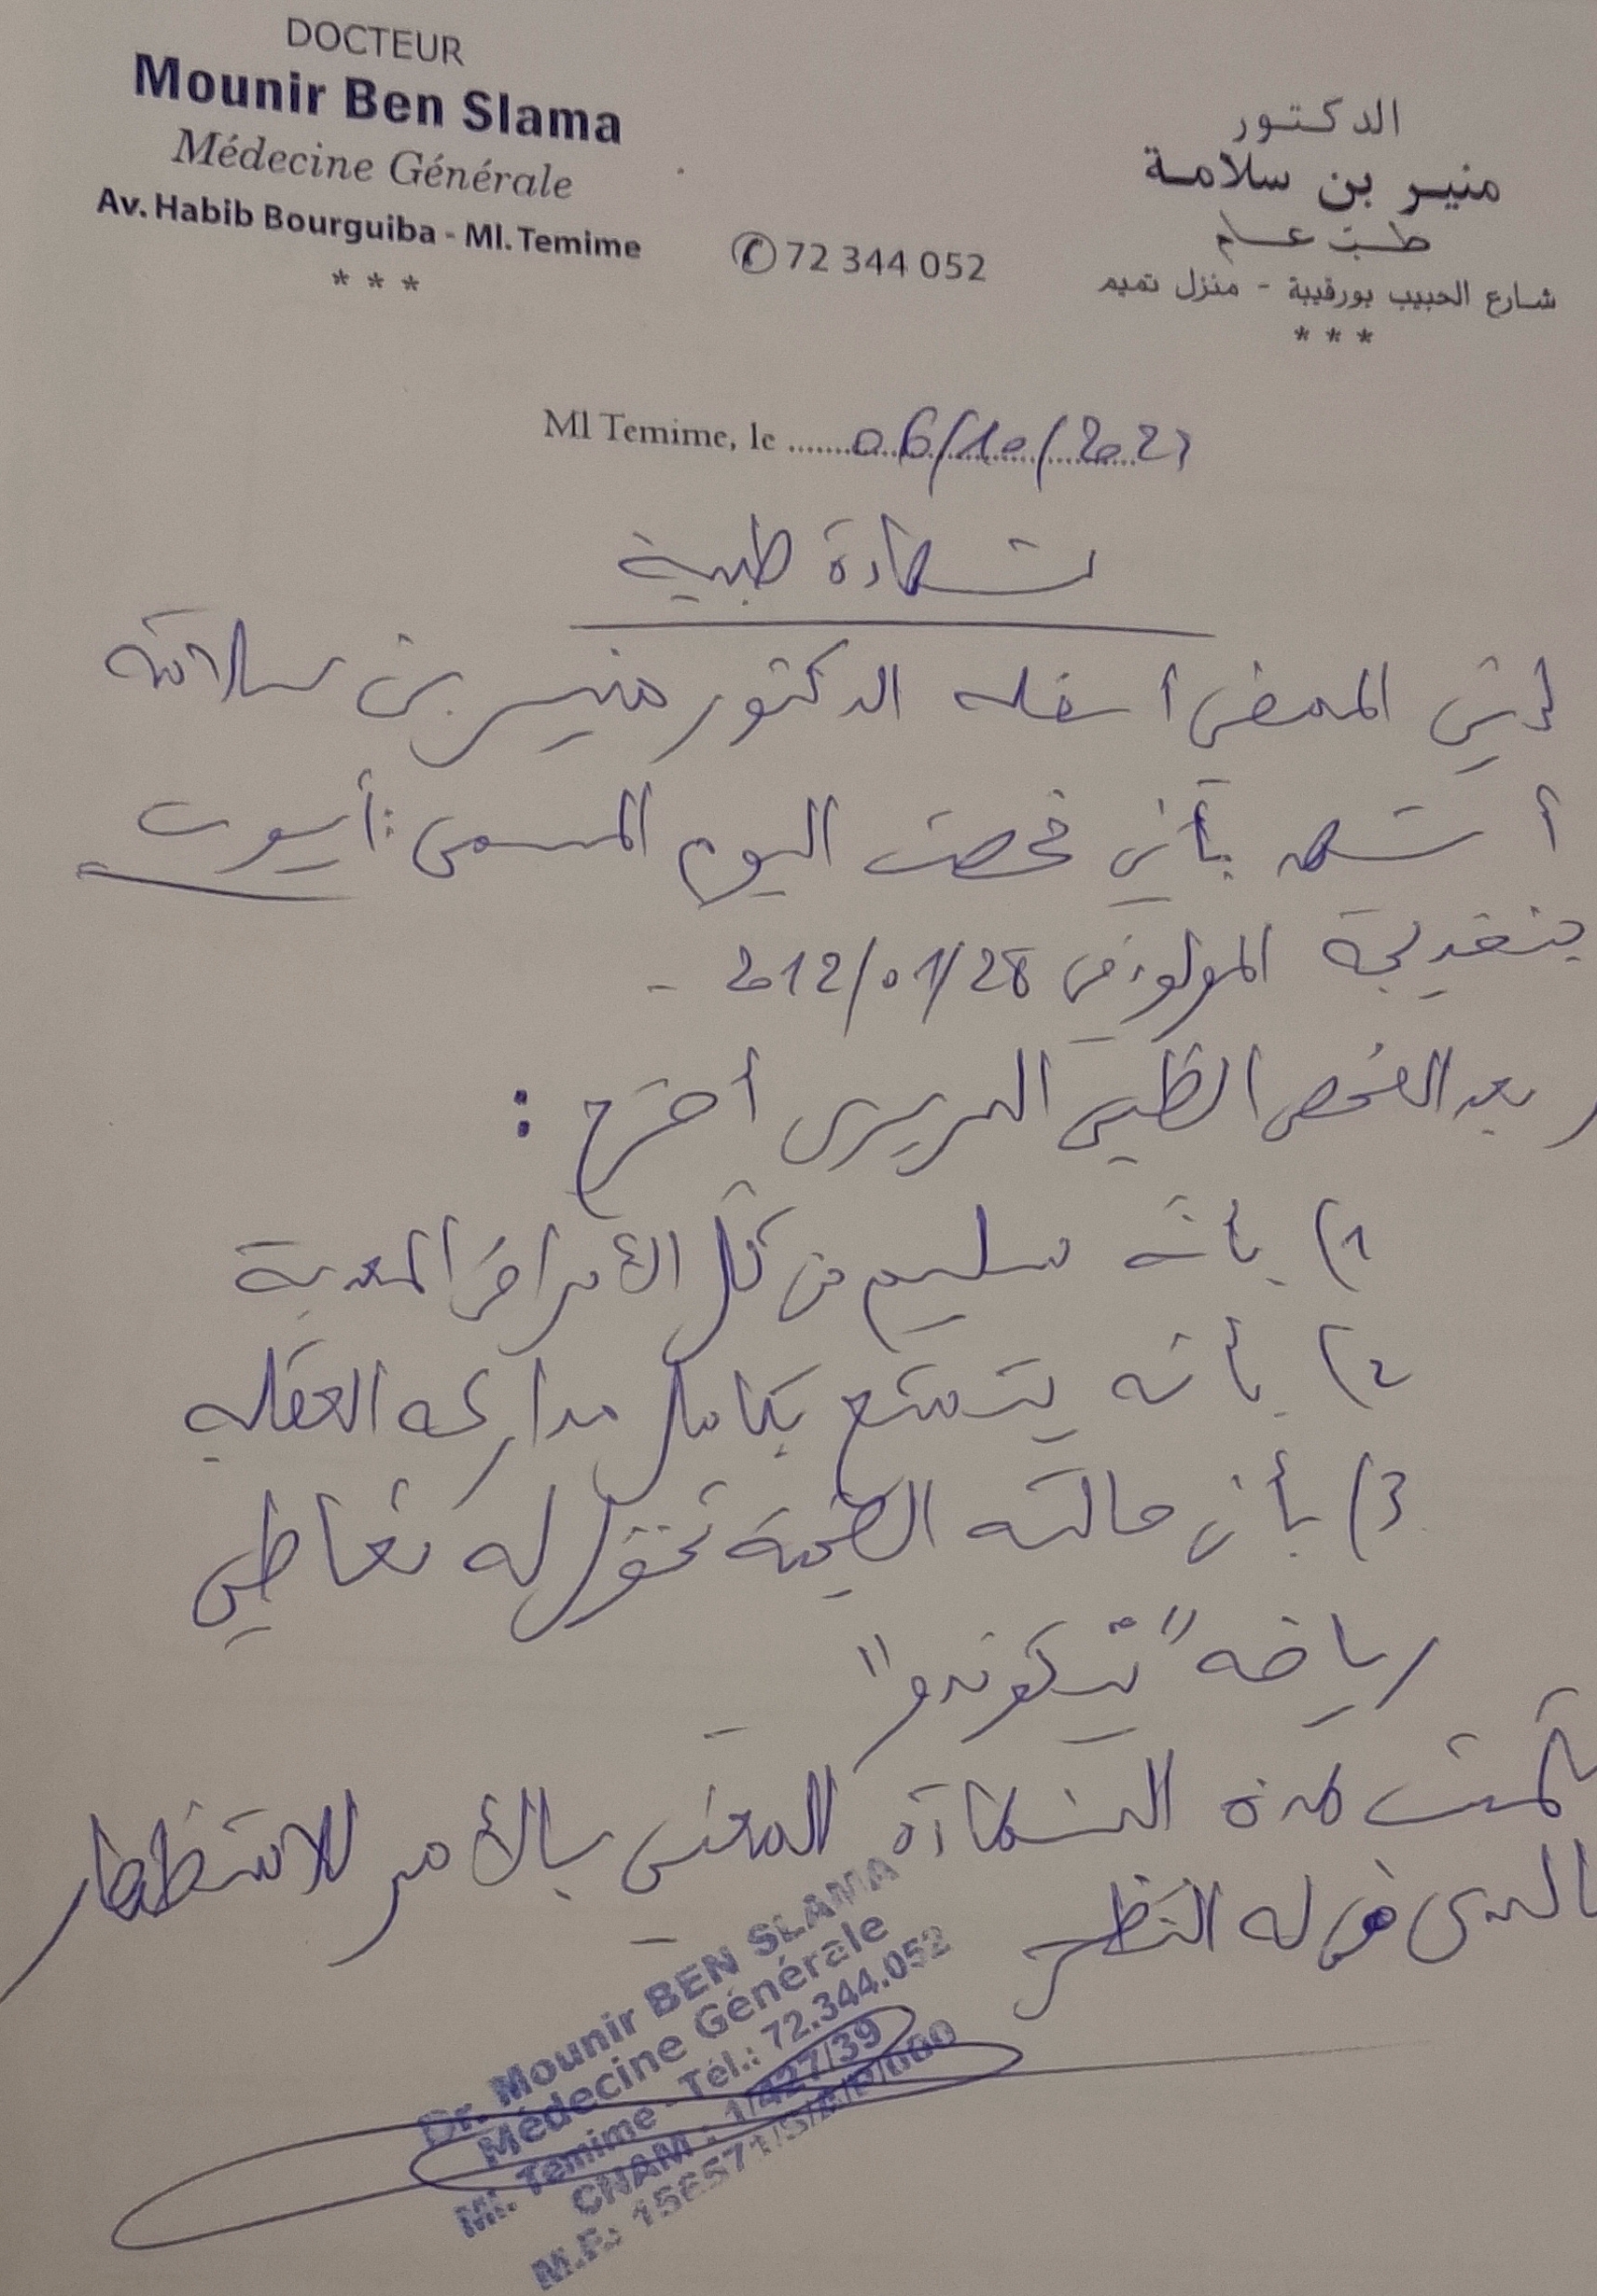 DOCTEUR
Mounir Ben Slama
Médecine Générale
Av. Habib Bourguiba - Ml. Temime
* * *
✆ 72 344 052
الدكتور
منير بن سلامة
طب عام
شارع الحبيب بورقيبة - منزل تميم
* * *
Ml Temime, le ........06/10/2023
شهادة طبية
إني الممضي أسفله الدكتور منير بن سلامة
أشهد بأني فحصت اليوم المسمى : أيوب
المولود في 2012/01/28 -
و بعد الفحص الطبي السريري أصرح :
1) بأنه سليم من كل الأمراض المعدية
2) بأنه يتمتع بكامل مداركه العقلية
3) بأن حالته الصحية تخول له تعاطي
رياضة "تيكوندو"
سلمت هذه الشهادة للمعني بالأمر للاستظهار
بها لدى من له النظر
Dr. Mounir BEN SLAMA
Médecine Générale
Ml. Temime - Tél.: 72.344.052
CNAM : 1/427/39
M.F.: 156571/S/A/P/000